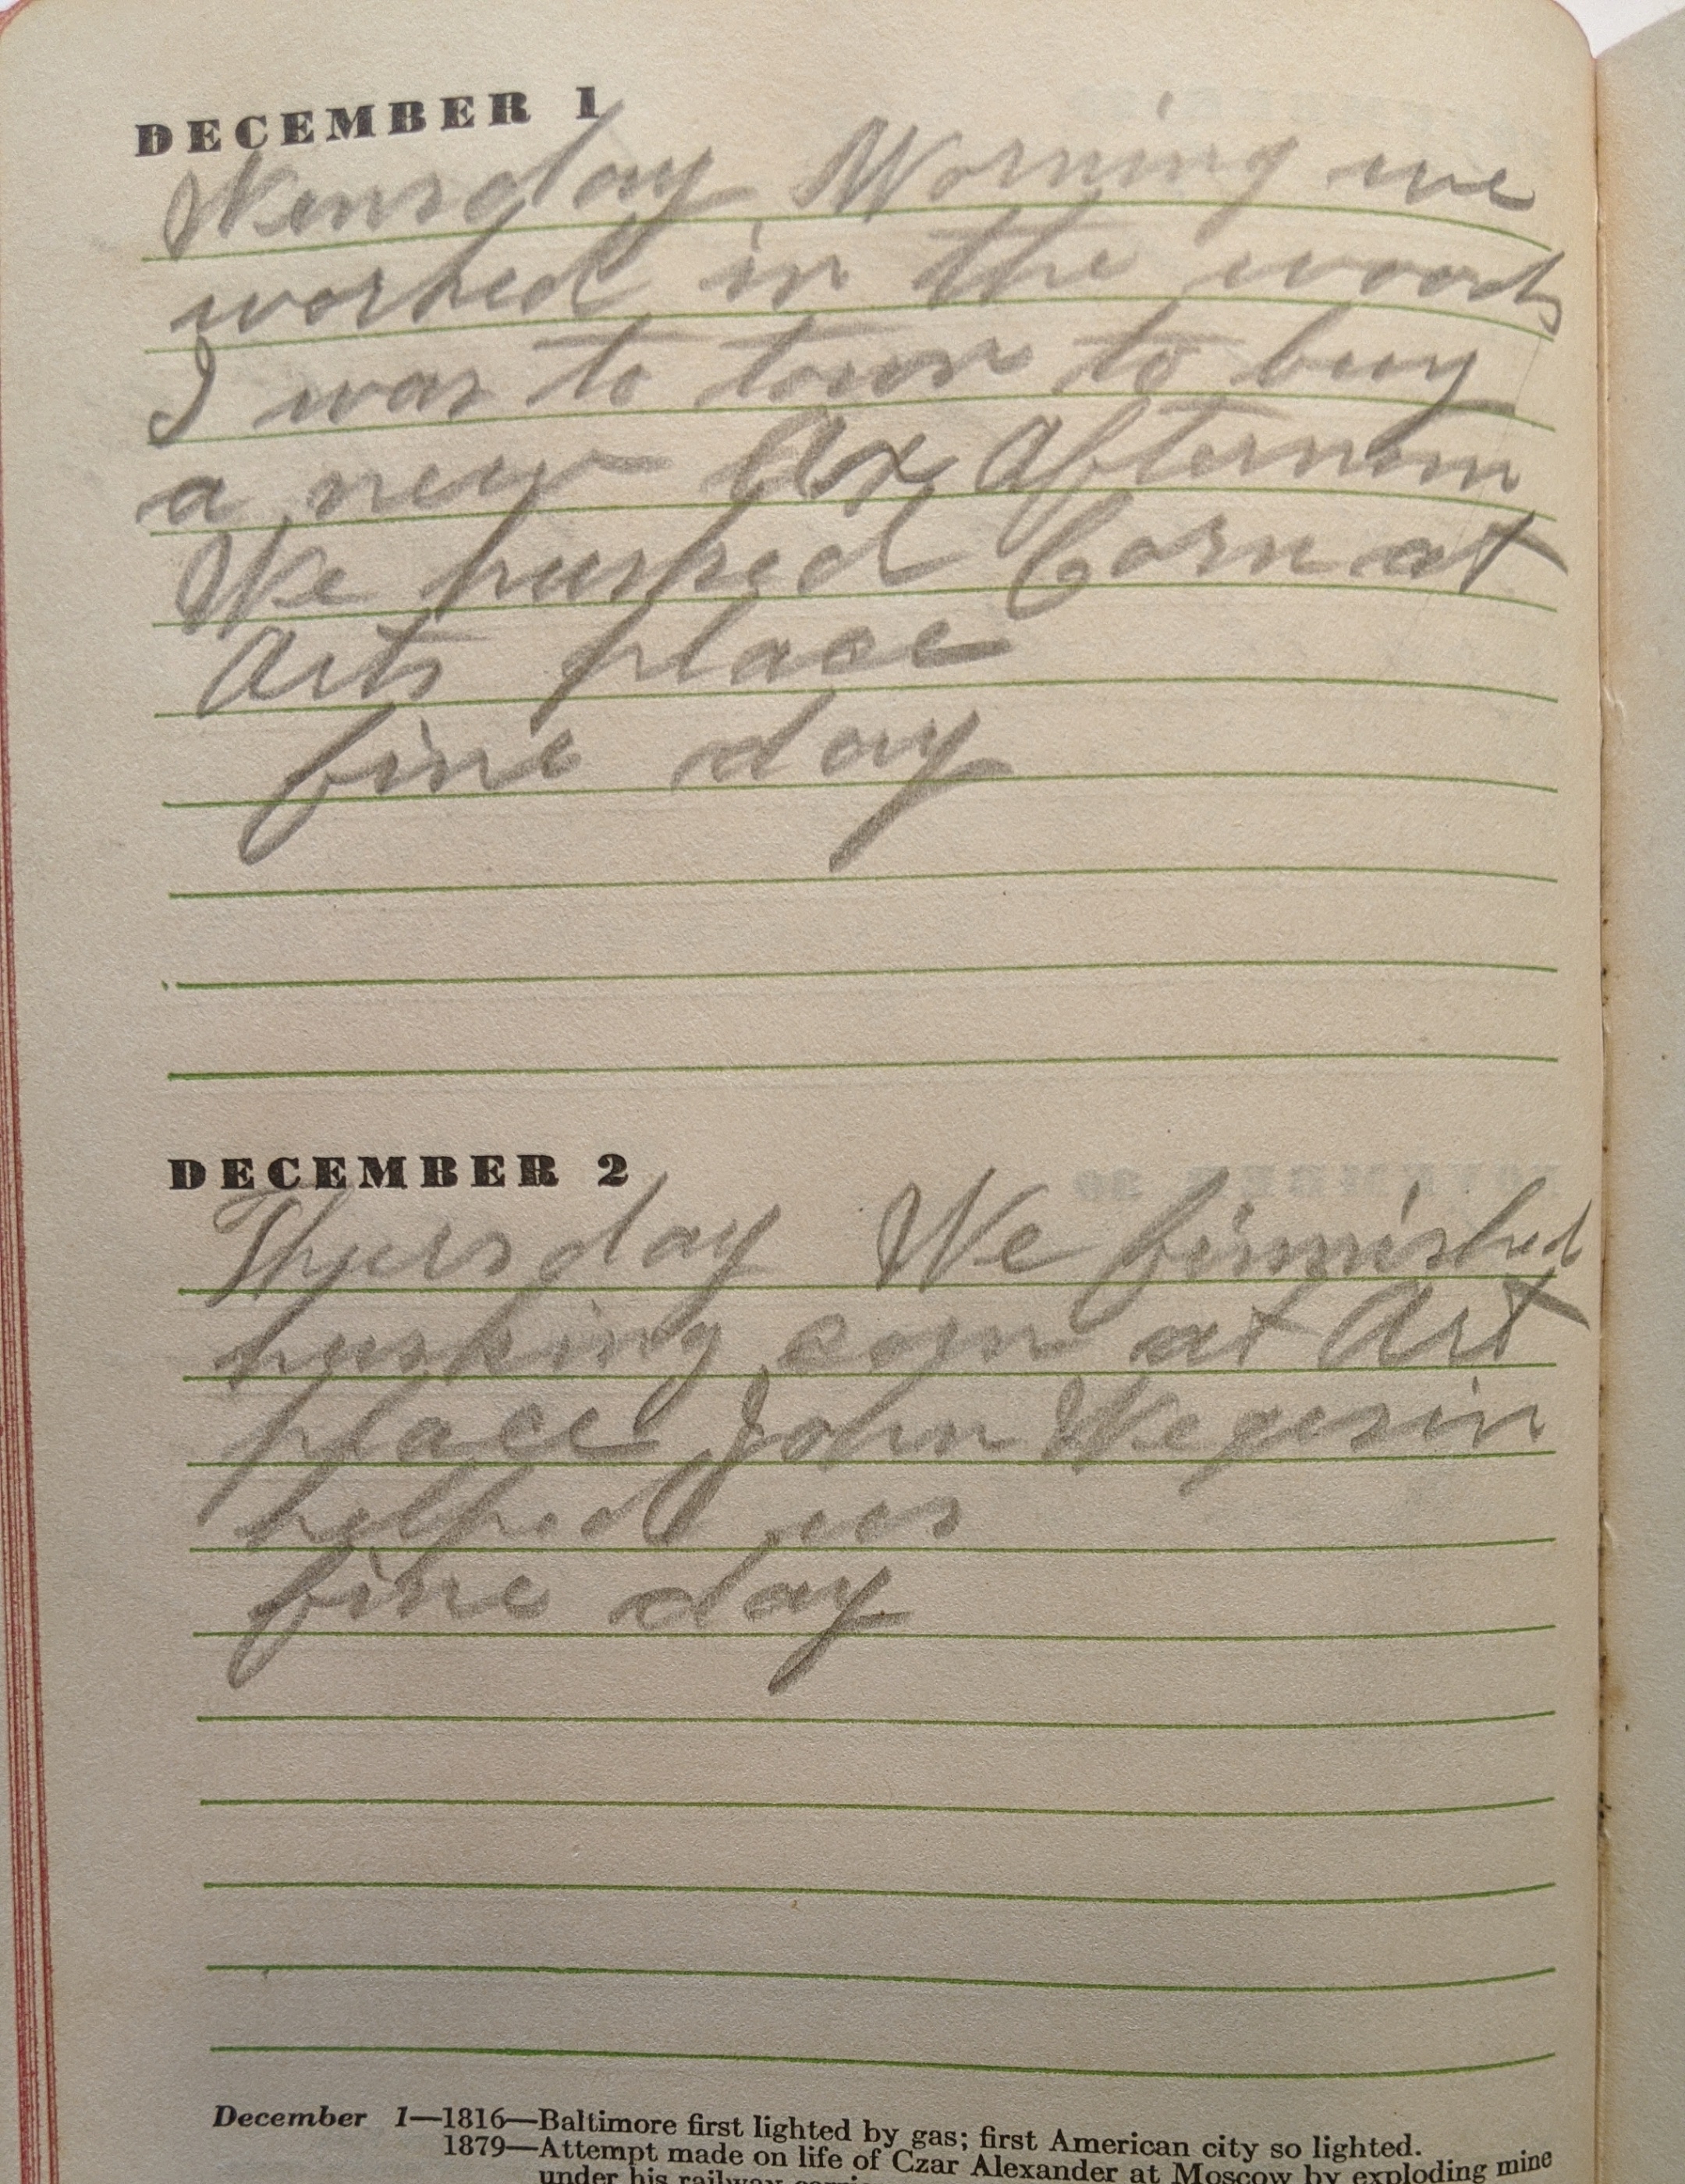 DECEMBER 1
Wensday Morning we
worked in the woods
I was to town to buy
a new Ax Afternoon
We husked Corn at
Arts place
fine day
DECEMBER 2
Thursday We finnished
husking corn at Art
place John Wegesin
helped us
fine day
December 1—1816—Baltimore first lighted by gas; first American city so lighted.
1879—Attempt made on life of Czar Alexander at Moscow by exploding mine
under his railway